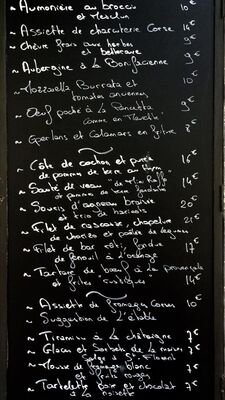 ~ Aumonière au broccio 10€
et Mesclun
~ Assiette de charcuterie Corse 14€
~ Chèvre frais aux herbes 9€
et betterave
~ Aubergine à la Bonifacienne 9€
~ Mozzarella Burrata et 10€
tomates anciennes
~ Oeuf poché à la Pancetta 9€
comme en
~ Eperlans et Calamars en friture 8€
~ Côte de cochon et purée 16€
de pomme de terre au thym
~ Sauté de veau 14€
et pomme de terre
~ Souris d'agneau braisée 20€
et trio de haricots
~ Filet de rascasse, chapelure 21€
de chorizo et poêlée de légumes
~ Filet de bar rôti, fondue 17€
de fenouil à l'orange
~ Tartare de boeuf à la provençale 14€
et frites
~ Assiette de fromages Corses 10€
~ Suggestion de l'étable
~ Tiramisu à la châtaigne 7€
~ Glaces et Sorbets de la maison
Salge à St Florent 7€
~ Mousse de fromage blanc 7€
et fruits rouges
~ Tartelette Poire et chocolat 9€
à la noisette